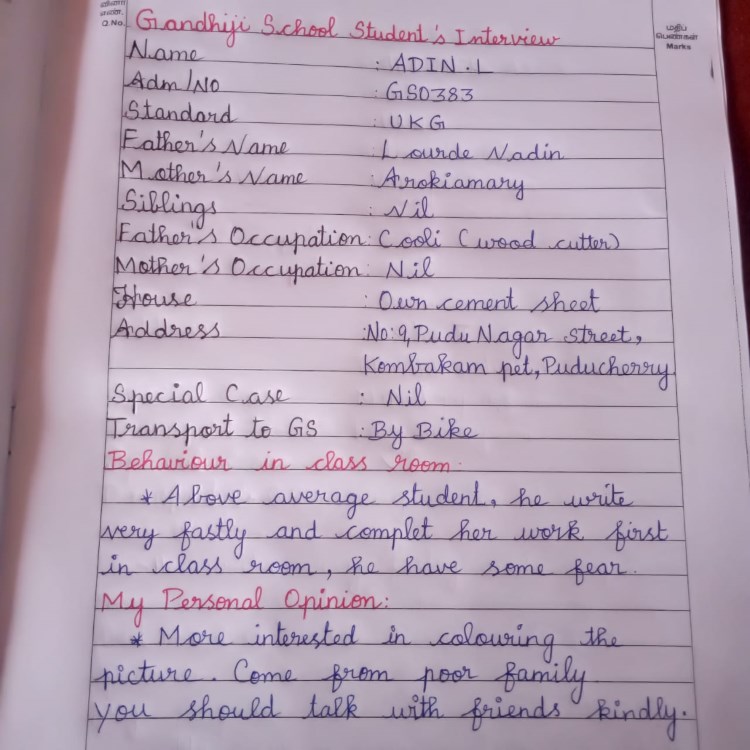 வினா
எண்.
Q.No.
மதிப்
பெண்கள்
Marks
Gandhiji School Student's Interview
Name : ADIN.L
Adm/No : GS0383
Standard : UKG
Father's Name : Lourde Nadin
Mother's Name : Arokiamary
Siblings : Nil
Father's Occupation : Cooli (wood cutter)
Mother's Occupation : Nil
House : Own cement sheet
Address : No:9, Pudu Nagar Street,
Kombakam pet, Puducherry
Special Case : Nil
Transport to GS : By Bike
Behaviour in class room.
* Above average student, he write
very fastly and complet her work first
in class room, he have some fear.
My Personal Opinion:
* More interested in colouring the
picture. Come from poor family
you should talk with friends kindly.